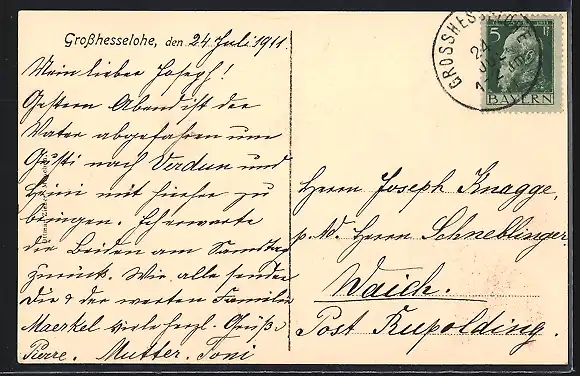 Großhesselohe, den 24 Juli 1911.
Mein lieber Joseph!
Gestern Abend ist der
Vater abgefahren um
Gusti nach Verdun und
Heini mit hierher zu
bringen. Ich erwarte
die Beiden am Samstag
zurück. Wir alle senden
Die & der werten Familie
Maerkel viele herzl. Grüße
Pierre. Mutter. Toni
GROSSHESSELOHE
24
JUL
5
BAYERN
Herrn Joseph Knagge,
p. Ad. Herrn Schneblinger
Waich.
Post Rupolding.